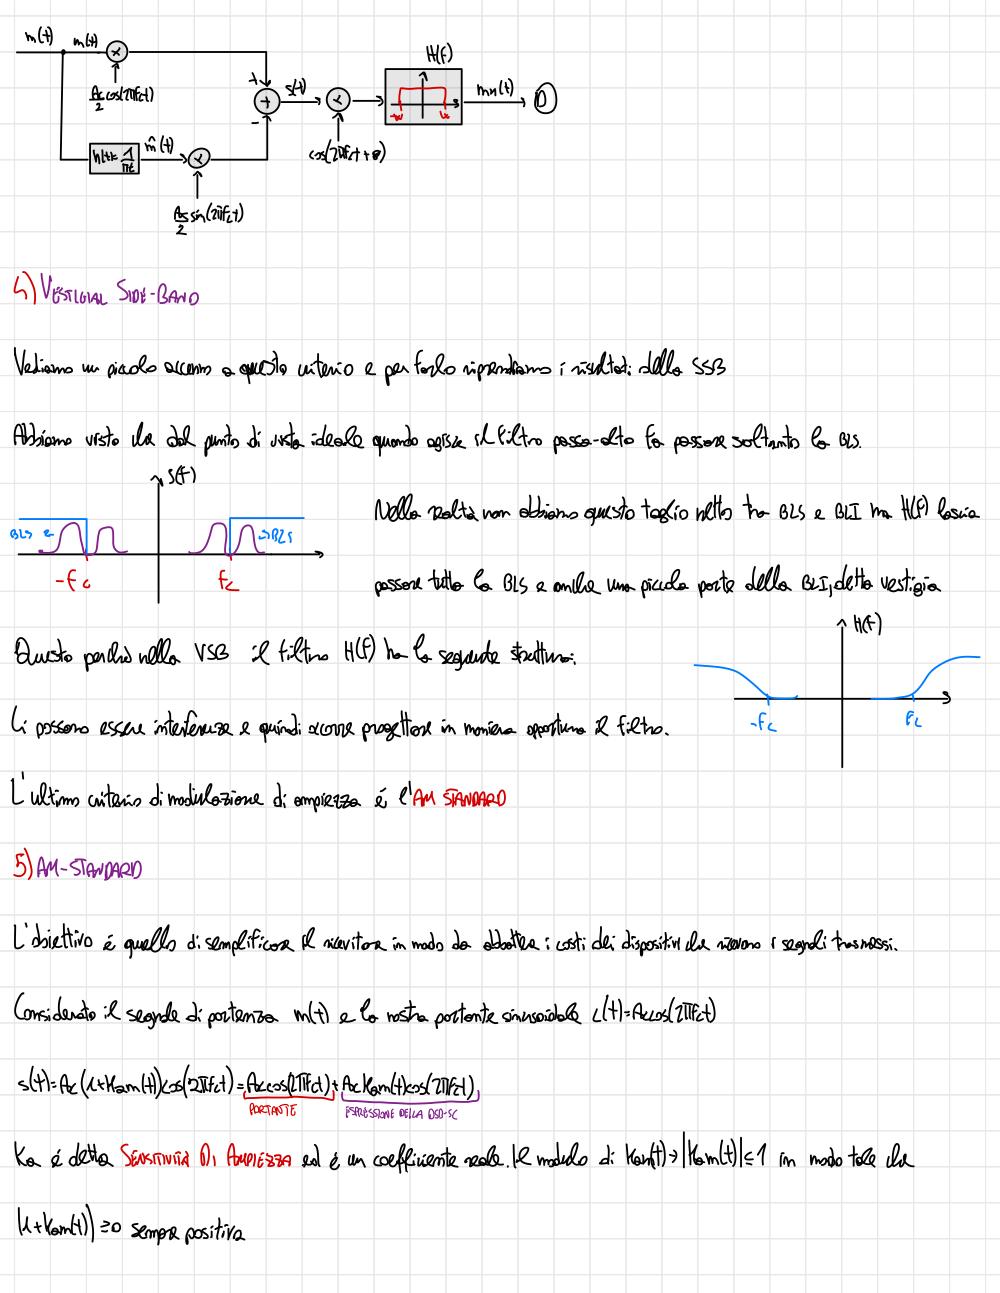 m(t) m(t) × H(f)
Ac/2 cos(2πfct) + + - s(t) × -w w mu(t) D
h(t)=1/πt m̂(t) × cos(2πfct+θ)
Ac/2 sin(2πfct)
4) VESTIGIAL SIDE-BAND
Vediamo un piccolo accenno a questo criterio e per farlo riprendiamo i risultati della SSB
Abbiamo visto che dal punto di vista ideale quando agisce il filtro passa-alto fa passare soltanto la BLS.
S(f)
BLS ← → BLS
-fc fc
Nella realtà non abbiamo questo taglio netto tra BLS e BLI ma H(f) lascia
passare tutta la BLS e anche una piccola parte della BLI, detta vestigia
Questo perché nella VSB il filtro H(f) ha la seguente struttura:
H(f)
-fc fc
Ci possono essere interferenze e quindi occorre progettare in maniera opportuna il filtro.
L'ultimo criterio di modulazione di ampiezza é l'AM STANDARD
5) AM-STANDARD
L'obiettivo é quello di semplificare il ricevitore in modo da abbattere i costi dei dispositivi che ricevono i segnali trasmessi.
Considerato il segnale di partenza m(t) e la nostra portante sinusoidale c(t)=Accos(2πfct)
s(t)=Ac(1+Kam(t))cos(2πfct)=Accos(2πfct)+AcKam(t)cos(2πfct)
PORTANTE ESPRESSIONE DELLA DSB-SC
Ka é detta SENSITIVITÀ DI AMPIEZZA ed é un coefficiente reale. Il modulo di Kam(t)→|Kam(t)|≤1 in modo tale che
(1+Kam(t))≥0 sempre positiva